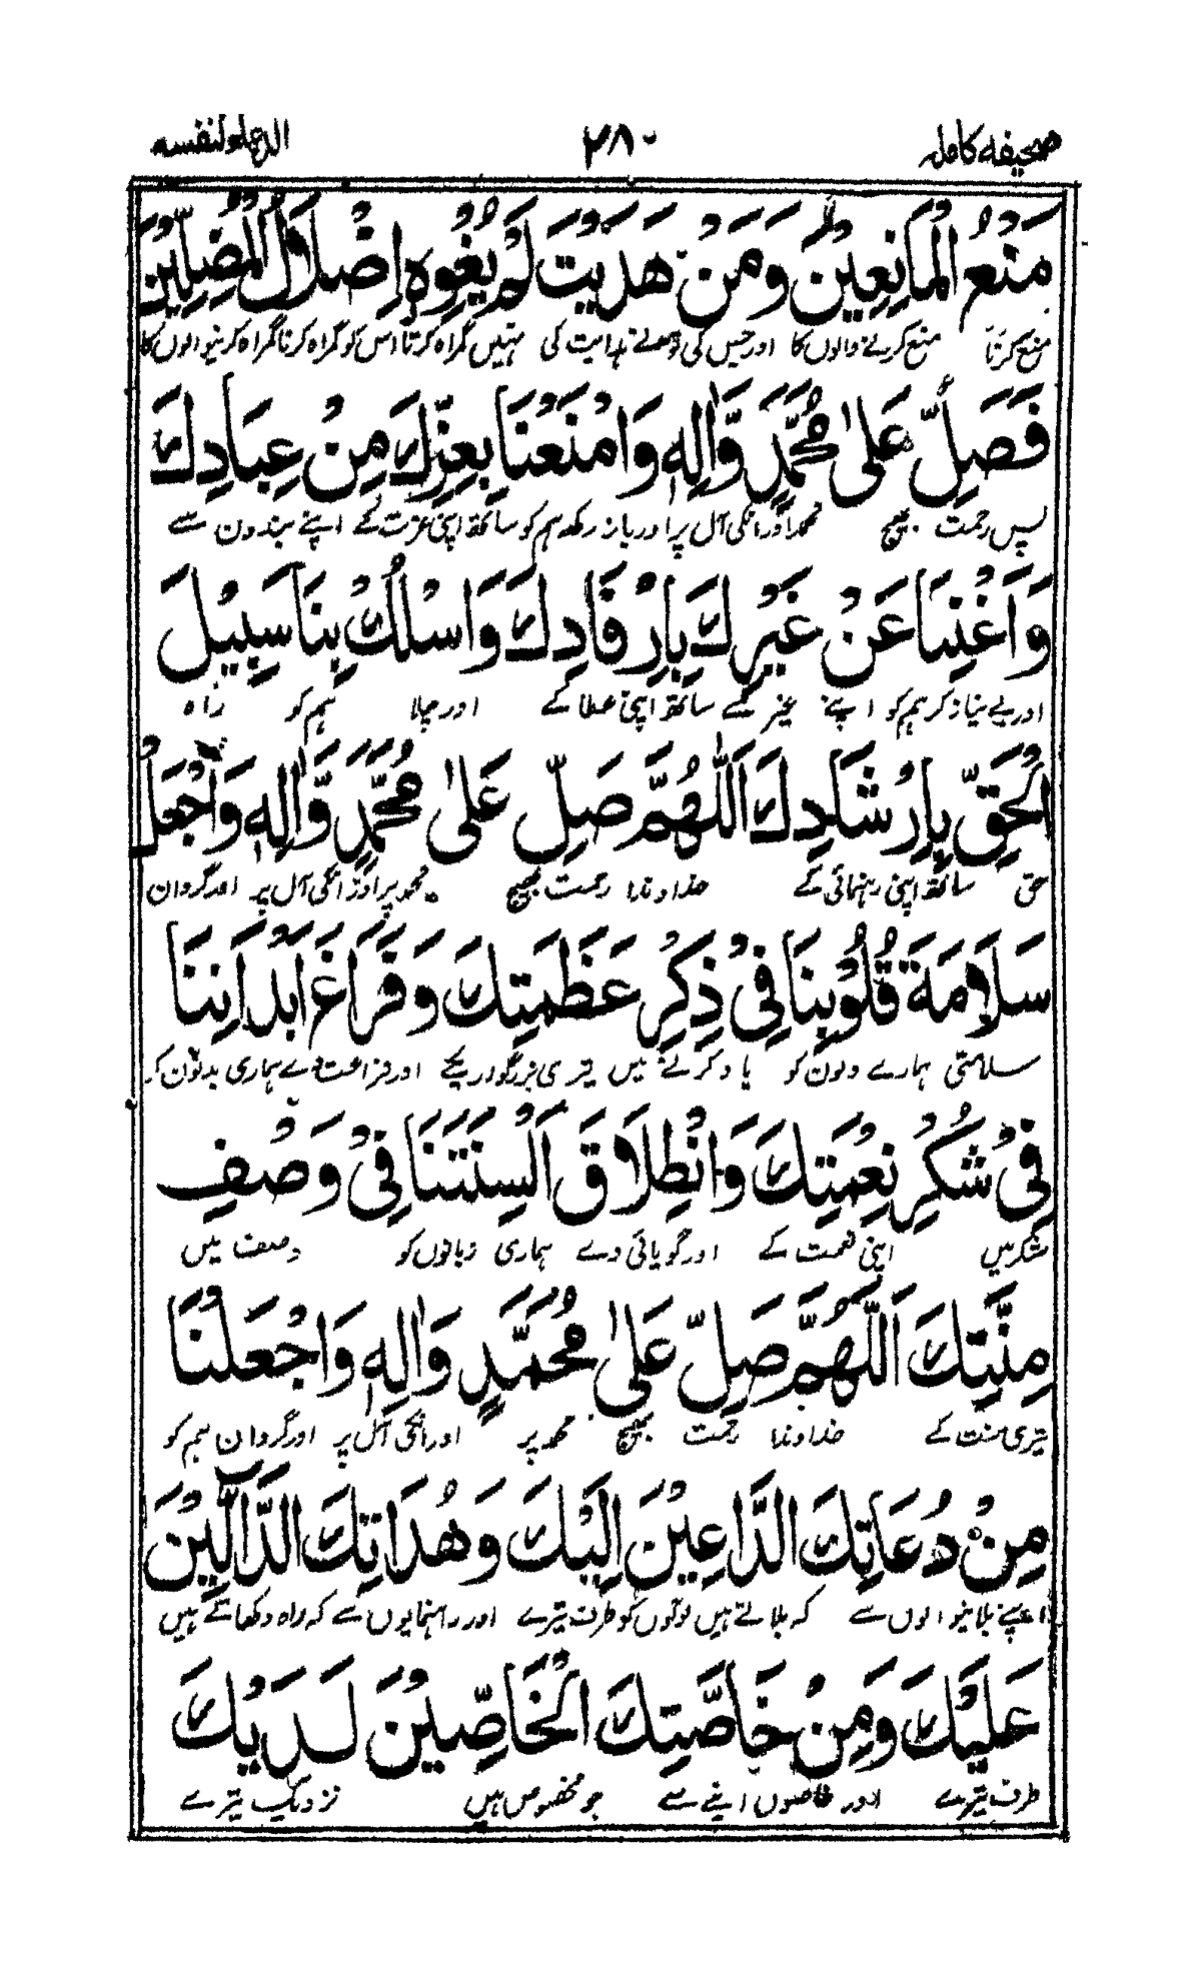 صحیفه کامله ۲۸۰ الدعاء لنفسه
مَنْعُ الْمَانِعِيْنَ وَمَنْ هَدَيْتَ لَمْ يُغْوِهِ اِضْلَالُ الْمُضِلِّيْنَ
منع کرنا منع کرنے والوں کا اور جس کی تونے ہدایت کی نہیں گمراہ کرتا اس کو گمراہ کرنا گمراہ کرنیوالوں کا
فَصَلِّ عَلٰى مُحَمَّدٍ وَّاٰلِهٖ وَامْنَعْنَا بِعِزِّكَ مِنْ عِبَادِكَ
پس رحمت بھیج محمد اور انکی آل پر اور باز رکھ ہم کو ساتھ اپنی عزت کے اپنے بندون سے
وَاَغْنِنَا عَنْ غَيْرِكَ بِاِرْفَادِكَ وَاسْلُكْ بِنَا سَبِيْلَ
اور بے نیاز کر ہم کو اپنے غیر سے ساتھ اپنی عطا کے اور چلا ہم کو راہ
الْحَقِّ بِاِرْشَادِكَ اَللّٰهُمَّ صَلِّ عَلٰى مُحَمَّدٍ وَّاٰلِهٖ وَاجْعَلْ
حق ساتھ اپنی رہنمائی کے خداوندا رحمت بھیج محمد پر اور انکی آل پر اور گردان
سَلَامَةَ قُلُوْبِنَا فِيْ ذِكْرِ عَظَمَتِكَ وَفَرَاغَ اَبْدَانِنَا
سلامتی ہمارے دلون کو یاد کرنے میں تیری بزرگواریکے اور فراغت دے ہماری بدنون کو
فِيْ شُكْرِ نِعْمَتِكَ وَانْطِلَاقَ اَلْسِنَتِنَا فِيْ وَصْفِ
شکر میں اپنی نعمت کے اور گویائی دے ہماری زبانوں کو وصف میں
مِنَّتِكَ اَللّٰهُمَّ صَلِّ عَلٰى مُحَمَّدٍ وَاٰلِهٖ وَاجْعَلْنَا
تیری منت کے خداوندا رحمت بھیج محمد پر اور انکی آل پر اور گردان ہم کو
مِنْ دُعَاتِكَ الدَّاعِيْنَ اِلَيْكَ وَهُدَاتِكَ الدَّآلِّيْنَ
اپنے بلانیوالوں سے کہ بلاتے ہیں لوگوں کو طرف تیرے اور راہنمایوں سے کہ راہ دکھاتے ہیں
عَلَيْكَ وَمِنْ خَاصَّتِكَ الْخَاصِّيْنَ لَدَيْكَ
طرف تیرے اور خاصوں اپنے سے جو مخصوص ہیں نزدیک تیرے